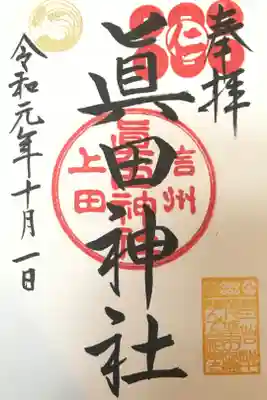 奉拝
仁
眞田神社
信州
上田
眞田神社
令和元年十月一日